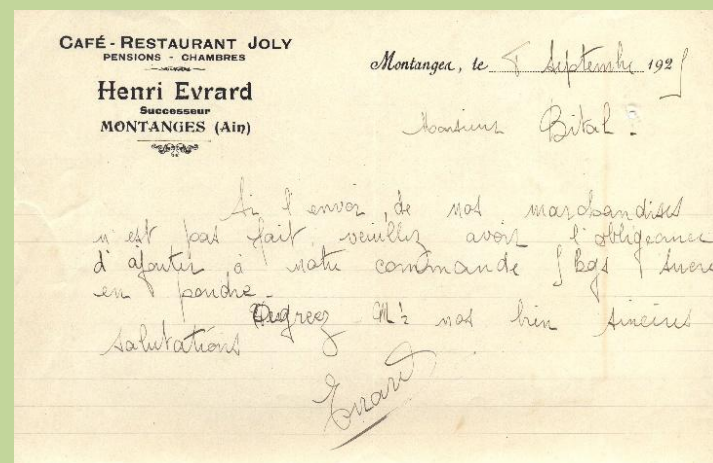 CAFÉ - RESTAURANT JOLY
PENSIONS - CHAMBRES
Henri Evrard
Successeur
MONTANGES (Ain)
Montanges, le 8 Septembre 1925
Monsieur Bital.
Si l'envoi de nos marchandises
n'est pas fait, veuillez avoir l'obligeance
d'ajouter à notre commande 5 kgs sucre
en poudre.
Agreez Mr nos bien sincères
salutations
Evrard